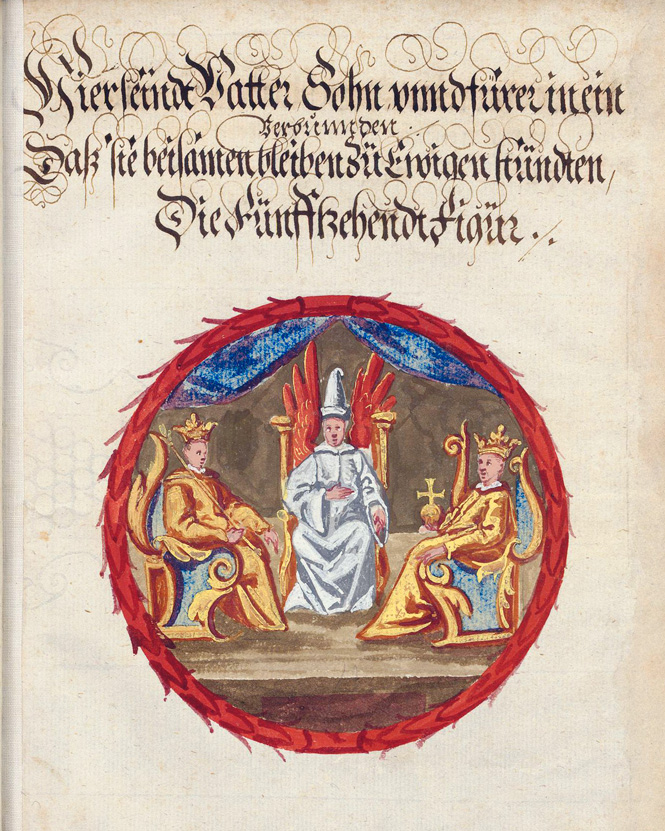 Hier seindt Vatter Sohn vnnd fürer in ein
Verbunnden.
Daß sie beisamen bleiben zü Ewigen stündten,
Die Fünfftzehendt Figür ./.